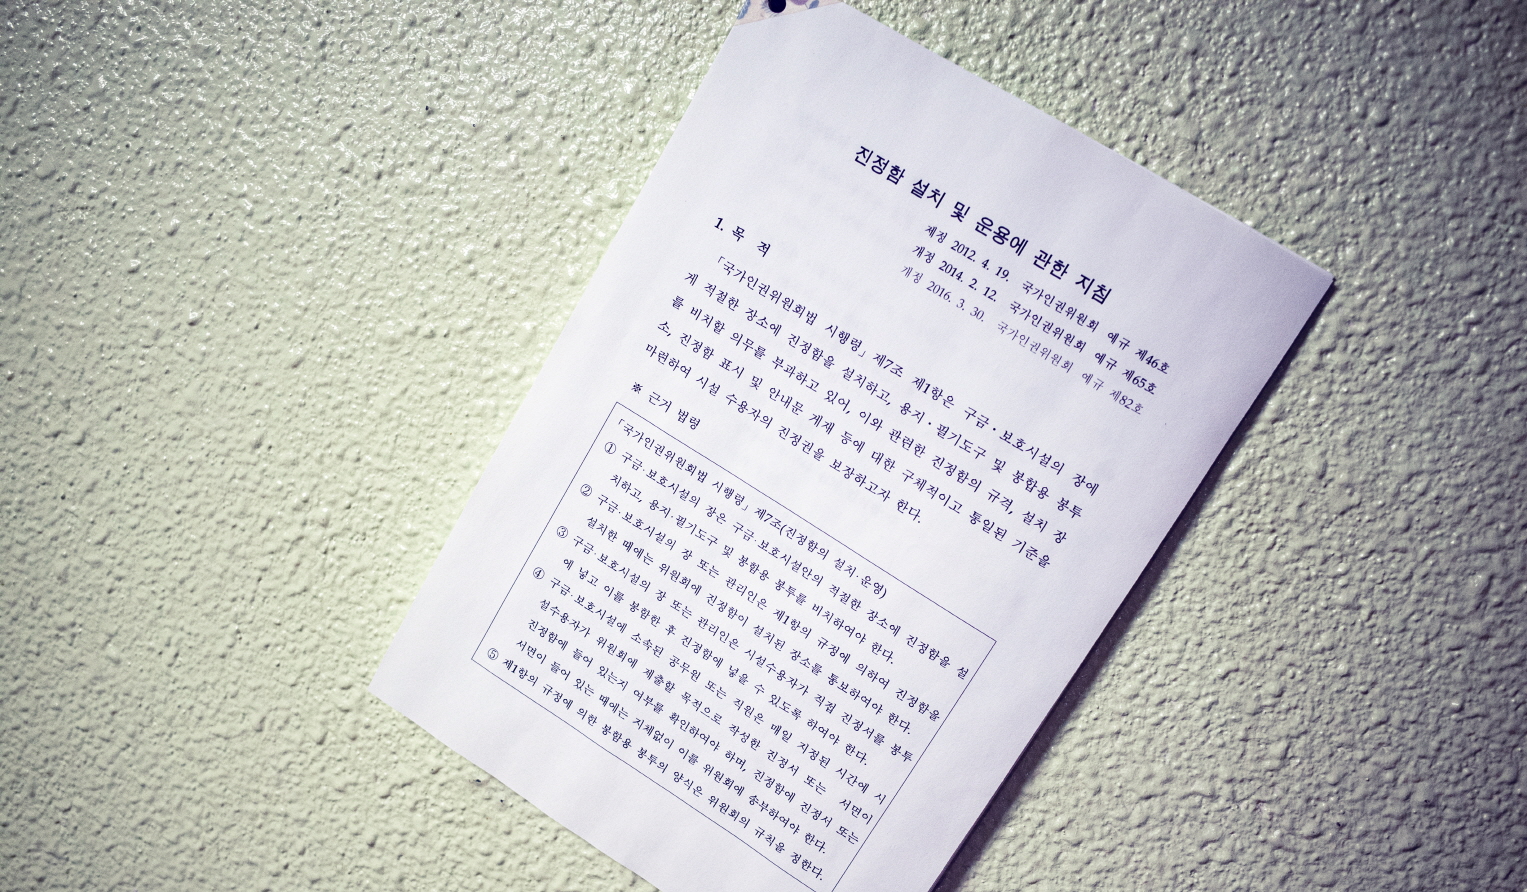 진정함 설치 및 운용에 관한 지침
제정 2012. 4. 19. 국가인권위원회 예규 제46호
개정 2014. 2. 12. 국가인권위원회 예규 제65호
개정 2016. 3. 30. 국가인권위원회 예규 제82호
1. 목 적
「국가인권위원회법 시행령」 제7조 제1항은 구금·보호시설의 장에
게 적절한 장소에 진정함을 설치하고, 용지·필기도구 및 봉함용 봉투
를 비치할 의무를 부과하고 있어, 이와 관련한 진정함의 규격, 설치 장
소, 진정함 표시 및 안내문 게재 등에 대한 구체적이고 통일된 기준을
마련하여 시설 수용자의 진정권을 보장하고자 한다.
※ 근거 법령
「국가인권위원회법 시행령」 제7조(진정함의 설치·운영)
① 구금·보호시설의 장은 구금·보호시설안의 적절한 장소에 진정함을 설
치하고, 용지·필기도구 및 봉함용 봉투를 비치하여야 한다.
② 구금·보호시설의 장 또는 관리인은 제1항의 규정에 의하여 진정함을
설치한 때에는 위원회에 진정함이 설치된 장소를 통보하여야 한다.
③ 구금·보호시설의 장 또는 관리인은 시설수용자가 직접 진정서를 봉투
에 넣고 이를 봉함한 후 진정함에 넣을 수 있도록 하여야 한다.
④ 구금·보호시설에 소속된 공무원 또는 직원은 매일 지정된 시간에 시
설수용자가 위원회에 제출할 목적으로 작성한 진정서 또는 서면이
진정함에 들어 있는지 여부를 확인하여야 하며, 진정함에 진정서 또는
서면이 들어 있는 때에는 지체없이 이를 위원회에 송부하여야 한다.
⑤ 제1항의 규정에 의한 봉함용 봉투의 양식은 위원회의 규칙을 정한다.